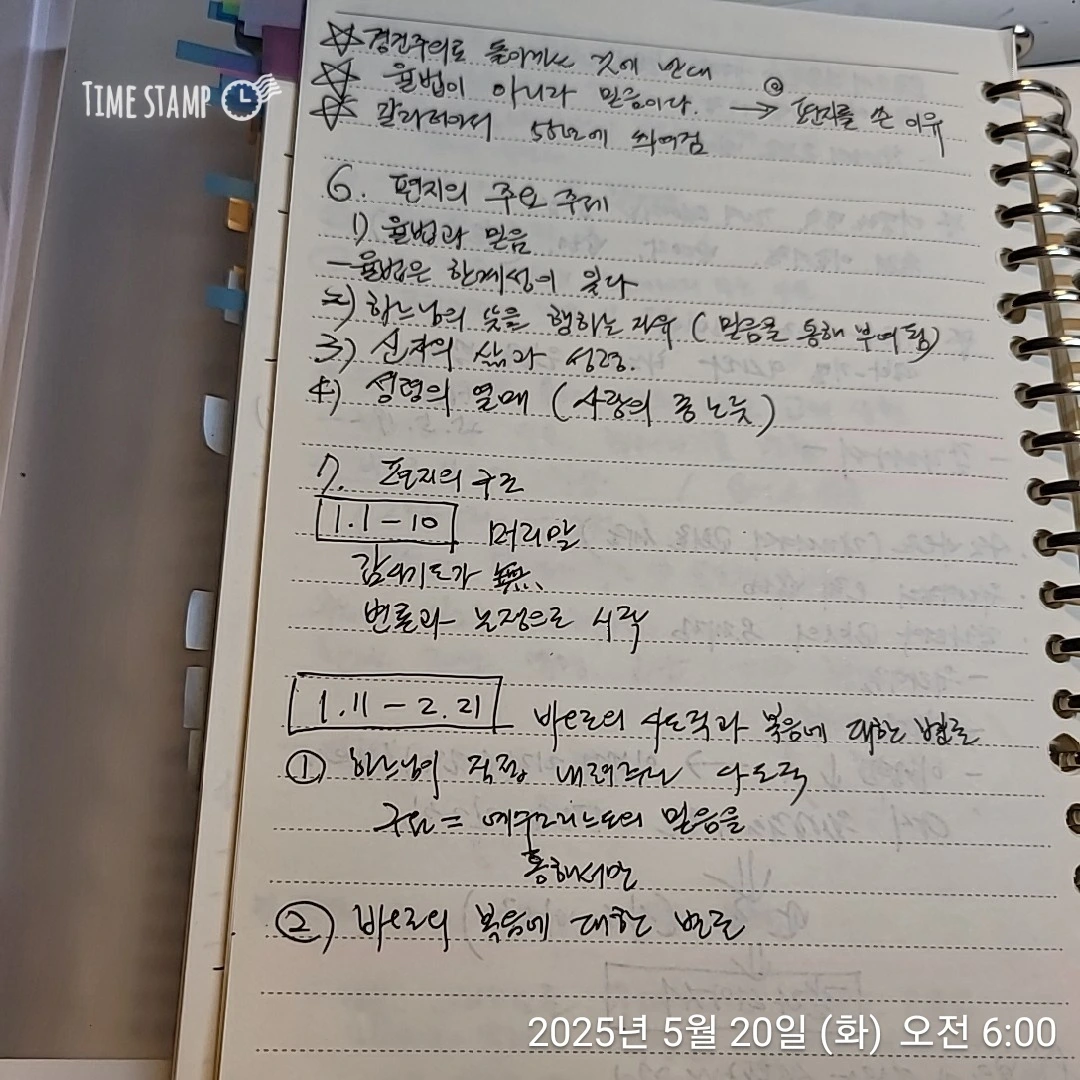 TIME STAMP
☆ 경건주의로 돌아가는 것에 반대
☆ 율법이 아니라 믿음이다. → 편지를 쓴 이유
☆ 갈라티아서 55년에 쓰여짐
6. 편지의 주요 주제
1) 율법과 믿음
- 율법은 한계성이 있다
2) 하느님의 뜻을 행하는 자유 (믿음을 통해 부여됨)
3) 신자의 삶과 성령.
4) 성령의 열매 (사랑의 종노릇)
7. 편지의 구조
1.1 - 10 머리말
감사기도가
변론과 논쟁으로 시작
1.11 - 2.21 바오로의 사도직과 복음에 대한 변론
① 하느님이 직접 내려주신 사도직
구원 = 예수그리스도의 믿음을
통해서만
② 바오로의 복음에 대한 변론
2025년 5월 20일 (화) 오전 6:00